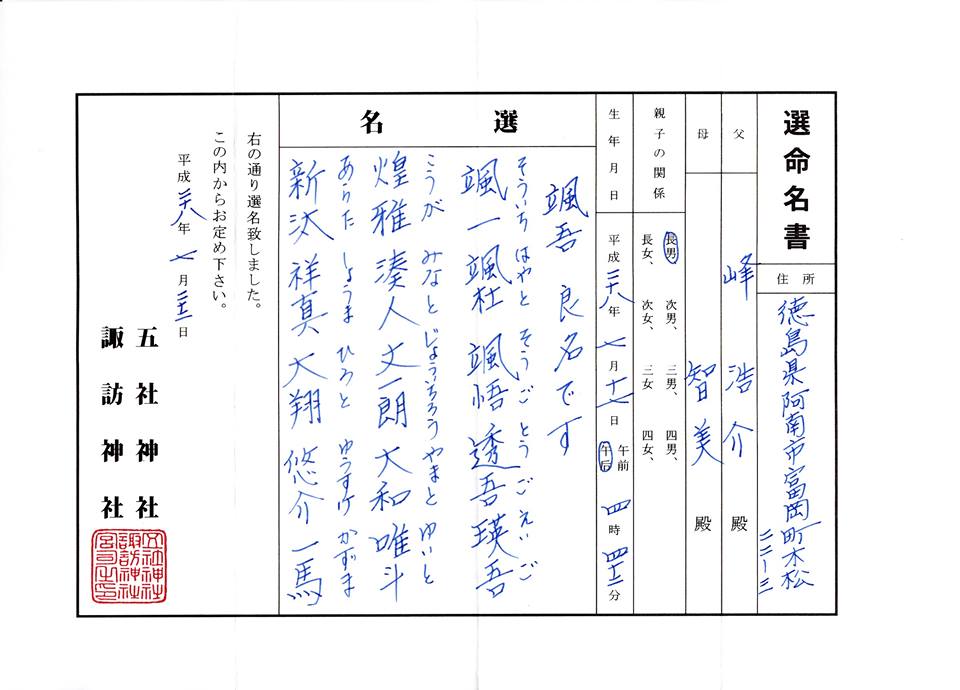 選命名書
住所
徳島県阿南市富岡町木松
二二一三
父 峰 浩介 殿
母 智美 殿
親子の関係 長男、次男、三男、四男、
長女、次女、三女 四女、
生年月日 平成二十八年 七月十七日 午前
午后 四時四十二分
選名
颯吾 良名です
そういち はやと そうご とうご えいご
颯一 颯杜 颯悟 透吾 瑛吾
こうが みなと じょういちろう やまと ゆいと
煌雅 湊人 丈一朗 大和 唯斗
あらた しょうま ひろと ゆうすけ かずま
新汰 祥真 大翔 悠介 一馬
右の通り選名致しました。
この内からお定め下さい。
平成二十八年 七月二十三日
五社神社
諏訪神社
五社神社
諏訪神社
宮司之印